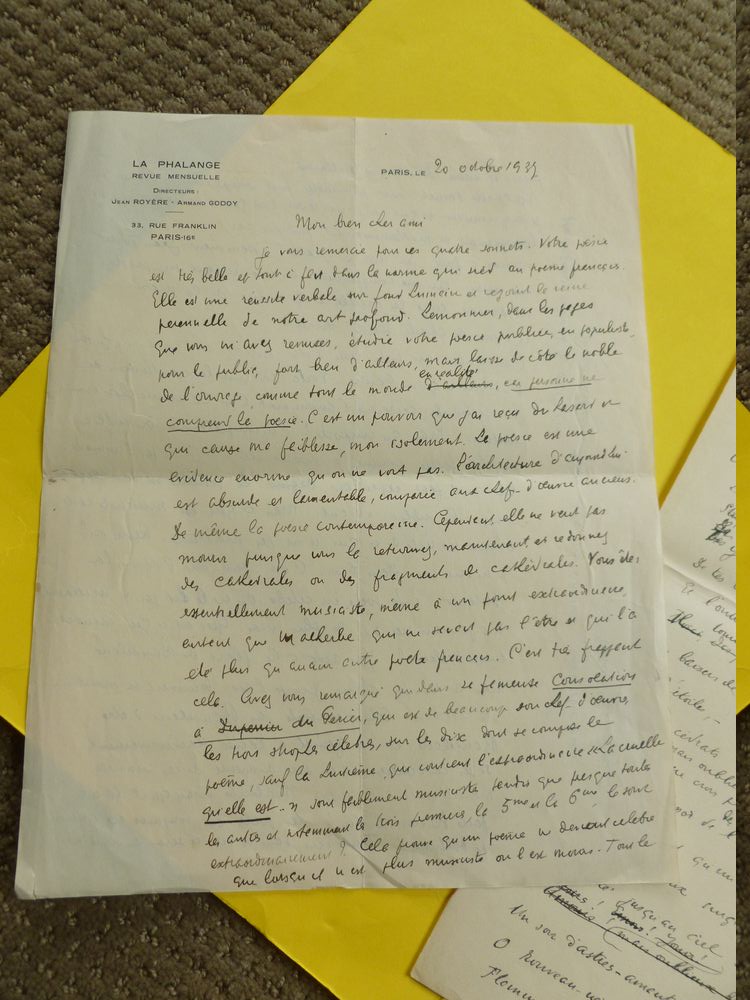 LA PHALANGE
REVUE MENSUELLE
DIRECTEURS :
JEAN ROYÈRE - ARMAND GODOY
33, RUE FRANKLIN
PARIS-16E
PARIS, LE 20 octobre 1937
Mon bien cher ami
Je vous remercie pour ces quatre sonnets. Votre poésie
est très belle et tout à fait dans la norme qui sied au poème français.
Elle est une réussite verbale sur fond
perennelle de notre art profond. Lemonnier, dans les pages
que vous m'avez remises, étudie votre poésie publiée, en populiste
pour le public, fort bien d'ailleurs, mais laisse de côté le noble
en réalité
de l'ouvrage comme tout le monde d'ailleurs, car personne ne
comprend la poésie. C'est un pouvoir que j'ai reçu du hasard et
qui cause ma faiblesse, mon isolement. La poésie est une
évidence énorme qu'on ne voit pas. L'architecture d'aujourd'hui
est absurde et lamentable, comparée aux chefs-d'œuvre anciens.
De même la poésie contemporaine. Cependant, elle ne veut pas
mourir puisque vous la retrouvez, maintenant, et redonnez
des cathédrales ou des fragments de cathédrales. Vous êtes
essentiellement musiciste, même à un point extraordinaire,
autant que Malherbe qui ne savait pas l'être et qui l'a
été plus qu'aucun autre poète français. C'est très frappant
cela. Avez vous remarqué que dans sa fameuse Consolation
à Duperrier du Périer, qui est de beaucoup son chef d'œuvre,
les trois strophes célèbres, sur les dix dont se compose le
poème, sauf la que contient l'extraordinaire La cruelle
qu'elle est.. sont faiblement musicistes tandis que presque toutes
les autres et notamment les trois premières, la 5me et la 6me le sont
extraordinairement? Cela prouve qu'un poème ne devient célèbre
que lorsqu'il n'est plus musiciste ou l'est moins. Tout le
jusqu'au ciel
Un son d'astres
O nouveau